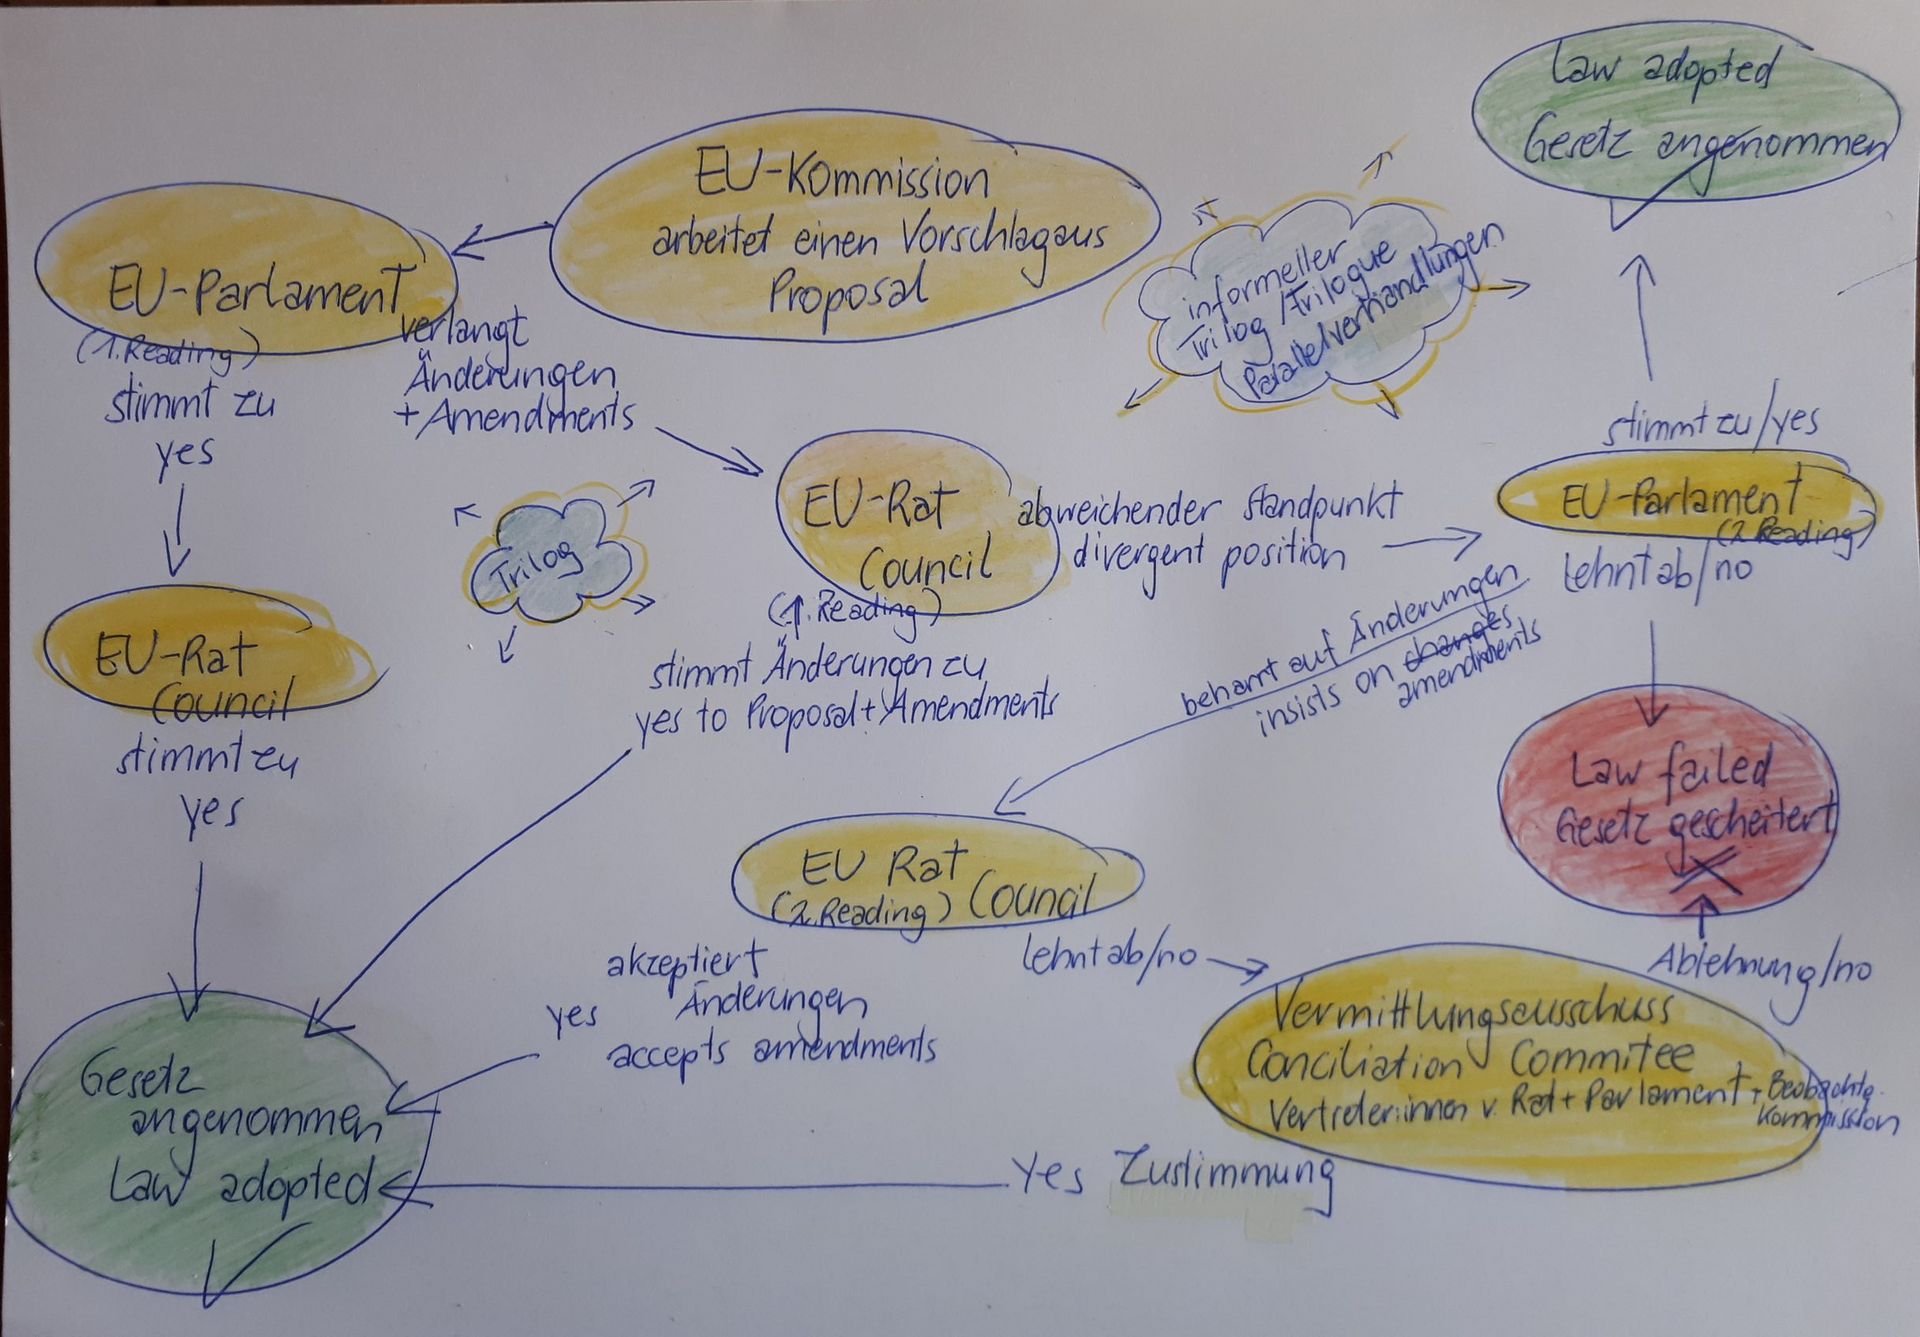 Law adopted
Gesetz angenommen
EU-Kommission
arbeitet einen Vorschlag aus
Proposal
EU-Parlament
(1. Reading)
stimmt zu
yes
verlangt
Änderungen
+ Amendments
informeller
Trilog / Trilogue
Parallelverhandlungen
stimmt zu/yes
EU-Parlament
(2. Reading)
lehnt ab/no
EU-Rat
Council
(1. Reading)
abweichender Standpunkt
divergent position
Trilog
stimmt Änderungen zu
yes to Proposal + Amendments
beharrt auf Änderungen
insists on changes
amendments
EU-Rat
Council
stimmt zu
yes
Law failed
Gesetz gescheitert
EU Rat
(2. Reading) Council
lehnt ab/no
akzeptiert
Änderungen
yes
accepts amendments
Ablehnung/no
Vermittlungsausschuss
Conciliation Commitee
Vertreter:innen v. Rat + Parlament + Beobachte.
Kommission
Gesetz
angenommen
Law adopted
Yes Zustimmung